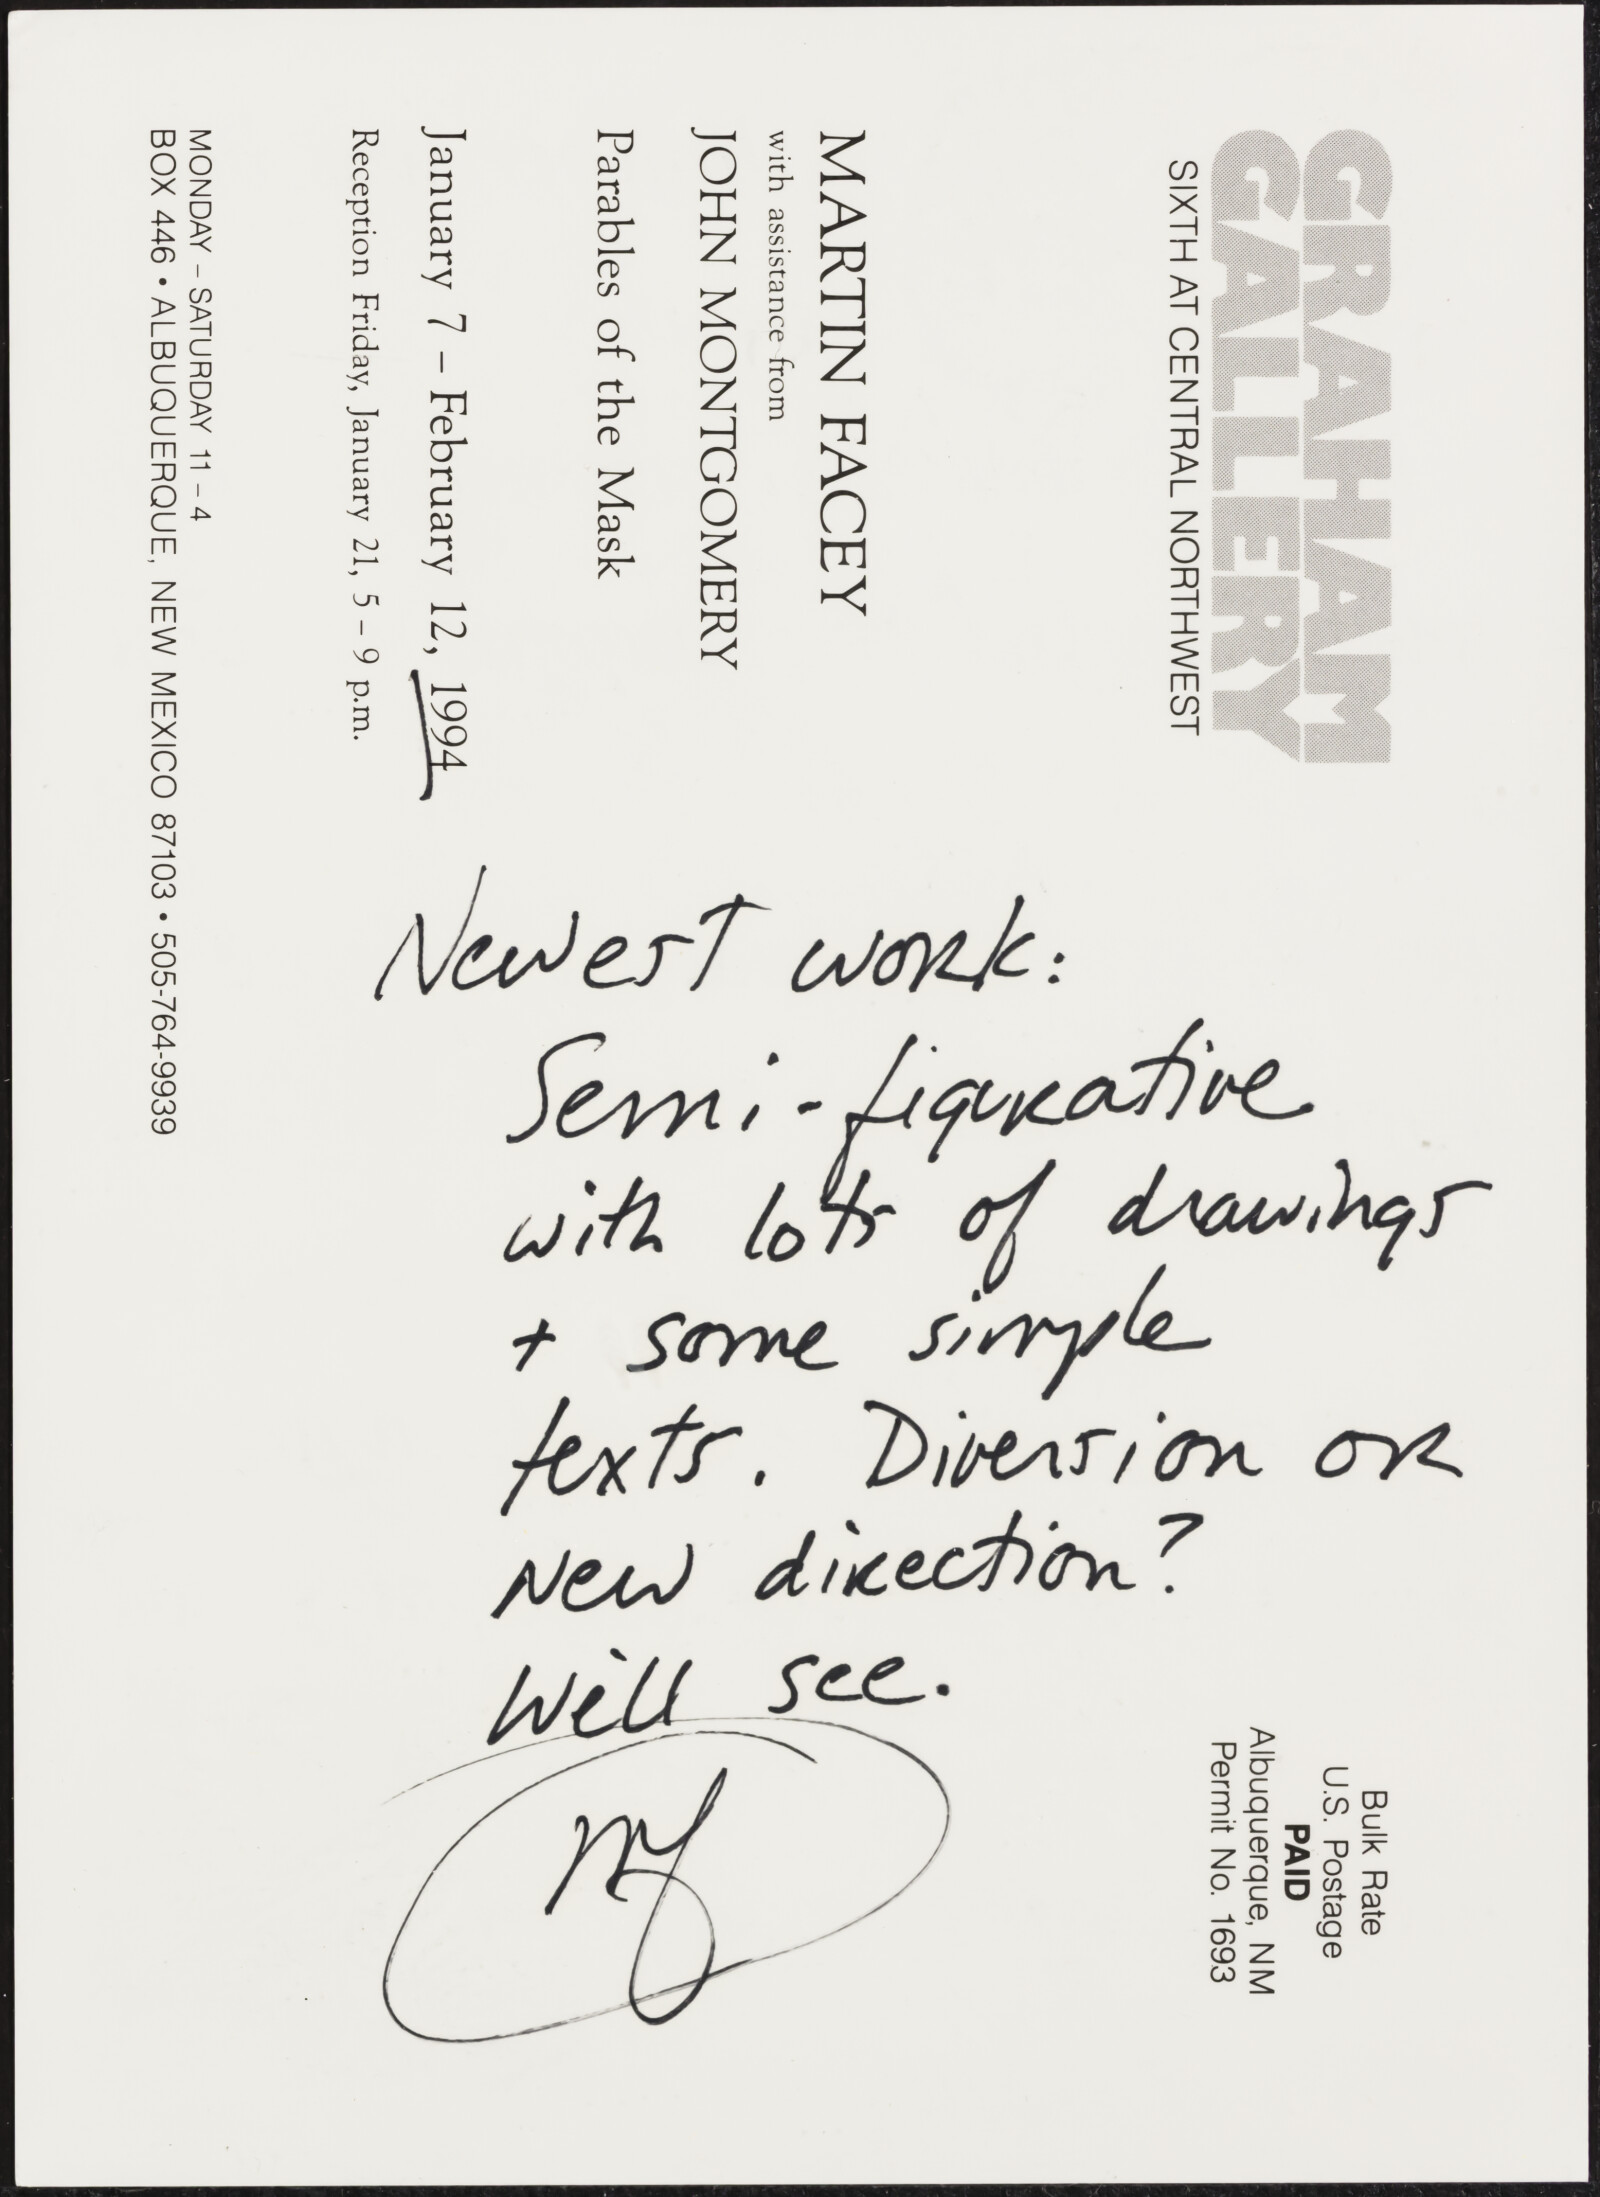 GRAHAM
GALLERY
SIXTH AT CENTRAL NORTHWEST
MARTIN FACEY
with assistance from
JOHN MONTGOMERY
Parables of the Mask
January 7 – February 12, 1994
Reception Friday, January 21, 5 – 9 p.m.
MONDAY – SATURDAY 11 – 4
BOX 446 • ALBUQUERQUE, NEW MEXICO 87103 • 505-764-9939
Bulk Rate
U.S. Postage
PAID
Albuquerque, NM
Permit No. 1693
Newest work:
Semi-figurative
with lots of drawings
+ some simple
texts. Diversion or
New direction?
We'll see.
MF